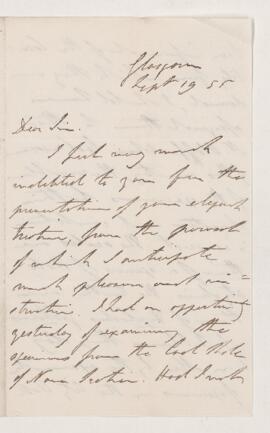 Glasgow
Sept 19 55
Dear Sir.
I feel very much
indebted to you for the
presentation of your elegant
treatise, from the perusal
of which I anticipate
much pleasure and in=
struction. I had an opportunity
yesterday of examining the
specimens from the Coal
of Nova Scotia. Had I not